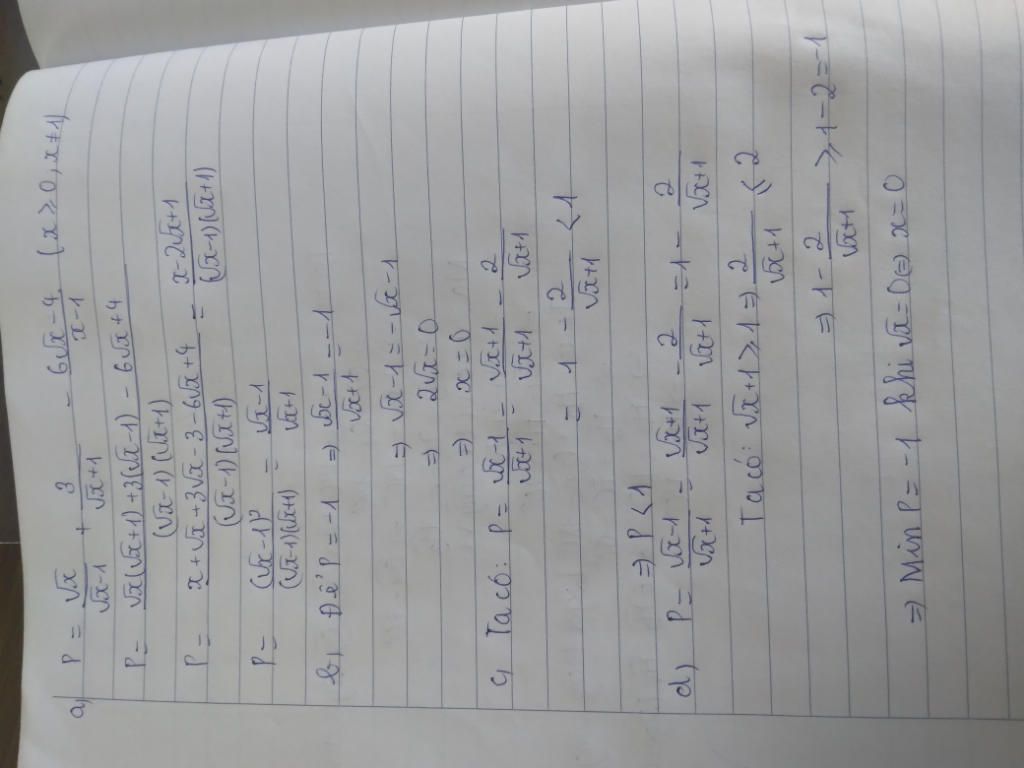 a) P = √x/(√x-1) + 3/(√x+1) - (6√x-4)/(x-1) (x ≥ 0, x ≠ 1)
P = (√x(√x+1)+3(√x-1) - 6√x+4)/((√x-1)(√x+1))
P = (x+√x+3√x-3-6√x+4)/((√x-1)(√x+1)) = (x-2√x+1)/((√x-1)(√x+1))
P = (√x-1)²/((√x-1)(√x+1)) = (√x-1)/(√x+1)
b, Để P = -1 => (√x-1)/(√x+1) = -1
=> √x-1 = -√x-1
=> 2√x = 0
=> x = 0
c, Ta có: P = (√x-1)/(√x+1) = (√x+1)/(√x+1) - 2/(√x+1)
= 1 - 2/(√x+1) < 1
=> P < 1
d) P = (√x-1)/(√x+1) = (√x+1)/(√x+1) - 2/(√x+1) = 1 - 2/(√x+1)
Ta có: √x+1 ≥ 1 => 2/(√x+1) ≤ 2
=> 1 - 2/(√x+1) ≥ 1-2 = -1
=> Min P = -1 khi √x = 0 => x = 0